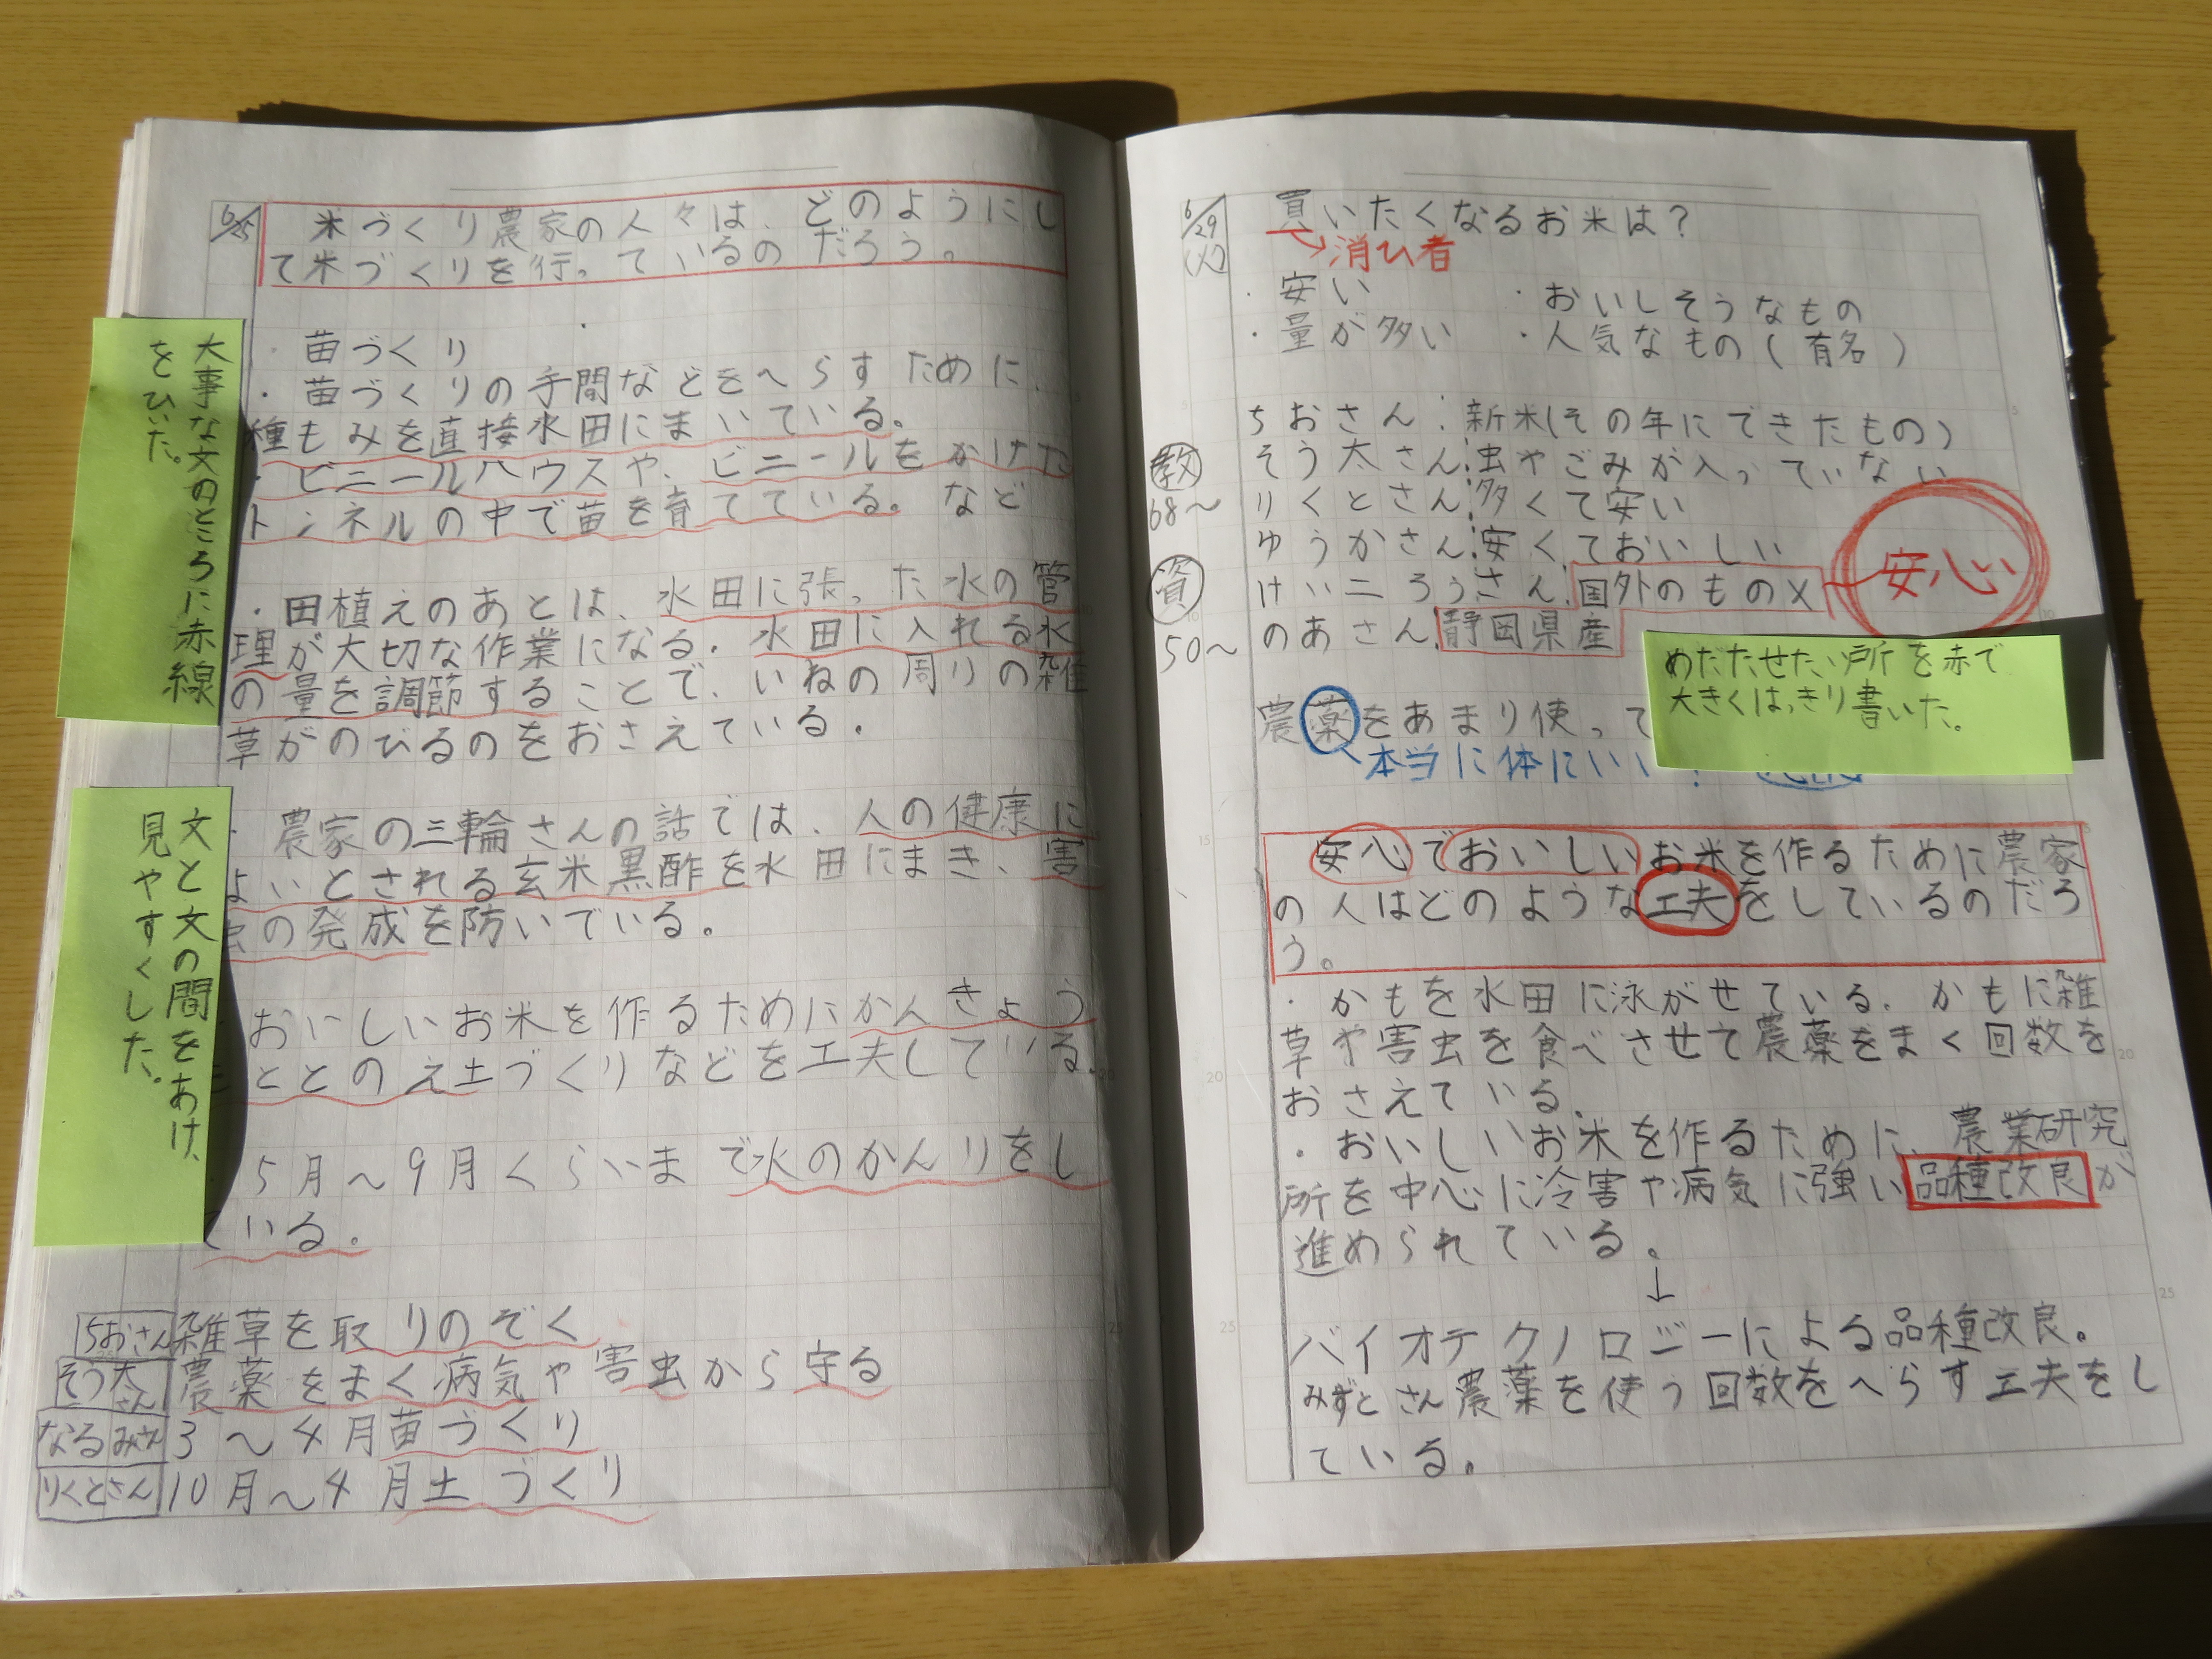 6/25
米づくり農家の人々は、どのようにし
て米づくりを行っているのだろう。
・苗づくり
・苗づくりの手間などをへらすために、
種もみを直接水田にまいている。
・ビニールハウスや、ビニールをかけた
トンネルの中で苗を育てている。など
・田植えのあとは、水田に張った水の管
理が大切な作業になる。水田に入れる水
の量を調節することで、いねの周りの雑
草がのびるのをおさえている。
・農家の三輪さんの話では、人の健康に
よいとされる玄米黒酢を水田にまき、害
虫の発成を防いでいる。
おいしいお米を作るためにかんきょう
をととのえ土づくりなどを工夫している。
5月〜9月くらいまで水のかんりをし
ている。
ちおさん 雑草を取りのぞく
そう太さん 農薬をまく病気や害虫から守る
なるみさん 3〜4月苗づくり
りくとさん 10月〜4月土づくり
大事な文のところに赤線
をひいた。
文と文の間をあけ、
見やすくした。
6/29
(火)
買いたくなるお米は?
→消ひ者
・安い ・おいしそうなもの
・量が多い ・人気なもの(有名)
ちおさん:新米(その年にできたもの)
そう太さん:虫やごみが入っていない
りくとさん:多くて安い
ゆうかさん:安くておいしい
けい二ろうさん:国外のもの×
安心い
のあさん:静岡県産
教
68〜
資
50〜
農薬をあまり使って
本当に体にいい
めだたせたい所を赤で
大きくはっきり書いた。
安心でおいしいお米を作るために農家
の人はどのような工夫をしているのだろ
う。
・かもを水田に泳がせている。かもに雑
草や害虫を食べさせて農薬をまく回数を
おさえている。
・おいしいお米を作るために、農業研究
所を中心に冷害や病気に強い品種改良が
進められている。
↓
バイオテクノロジーによる品種改良。
みずとさん農薬を使う回数をへらす工夫をし
ている。